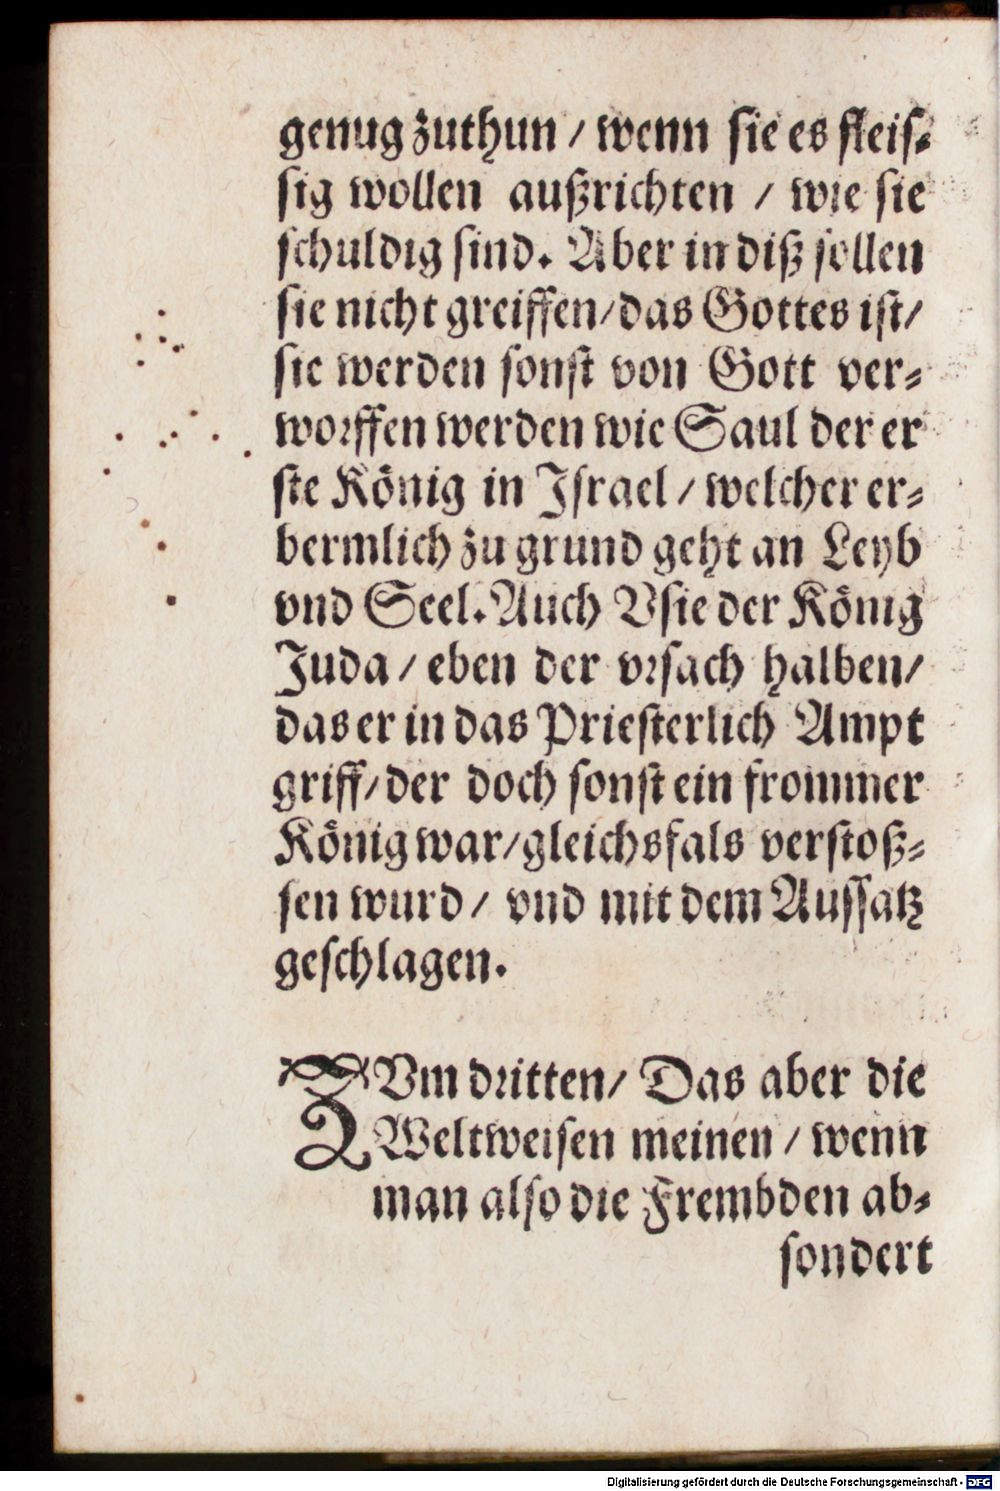 genug zuthun / wenn sie es fleis⸗
sig wollen außrichten / wie sie
schuldig sind. Aber in diß sollen
sie nicht greiffen/das Gottes ist/
sie werden sonst von Gott ver⸗
worffen werden wie Saul der er
ste König in Israel / welcher er⸗
bermlich zu grund geht an Leyb
vnd Seel. Auch Vsie der König
Juda / eben der vrsach halben/
das er in das Priesterlich Ampt
griff/der doch sonst ein frommer
König war/gleichsfals verstoß⸗
sen wurd / vnd mit dem Aussatz
geschlagen.
ZVm dritten/ Das aber die
Weltweisen meinen / wenn
man also die Frembden ab⸗
sondert
Digitalisierung gefördert durch die Deutsche Forschungsgemeinschaft - DFG